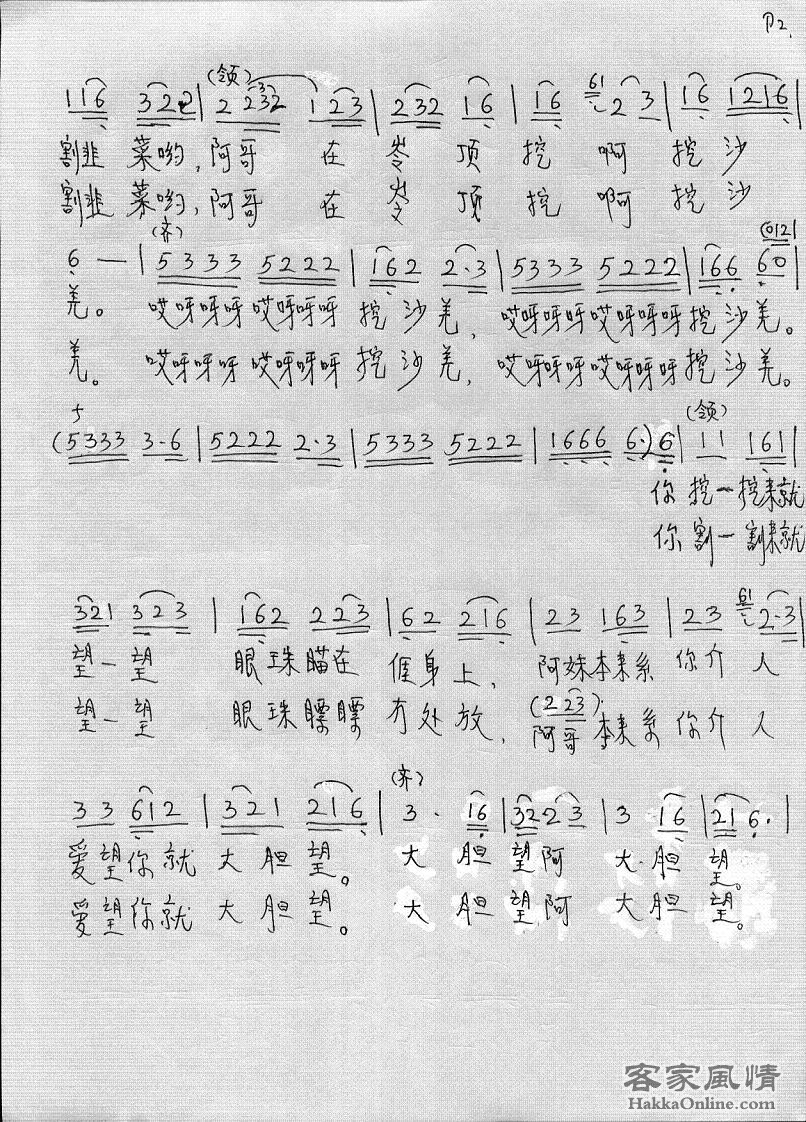 P2.
(领)
116 3222 | 2 232 3 123 | 232 16 | 16 61 2 3 | 16 1216 |
割韭 菜哟, 阿哥 在 岺 顶 挖 啊 挖 沙
割韭 菜哟, 阿哥 在 岺 顶 挖 啊 挖 沙
(齐) (012|
6 — | 5333 5222 | 162 2·3 | 5333 5222 | 166 60 |
羌。 哎呀呀呀 哎呀呀呀 挖 沙 羌, 哎呀呀呀哎呀呀呀挖沙羌。
羌。 哎呀呀呀 哎呀呀呀 挖 沙 羌, 哎呀呀呀哎呀呀呀挖沙羌。
(领)
(5333 3·6 | 5222 2·3 | 5333 5222 | 1666 6·) 6 | 11 161 |
你 挖一挖来就
你 割一割来就
321 323 | 162 223 | 62 216 | 23 163 | 23 61 2·3 |
望一望 眼珠瞄在 𠊎身上, 阿妹本来系 你介人
(2 23)
望一望 眼珠瞟瞟 冇处放, 阿哥本来系你介人
(齐)
33 612 | 321 216 | 3· 16 | 32 23 | 3 16 | 21 6· |
爱望你就 大胆望。 大 胆望阿 大胆 望。
爱望你就 大胆望。 大 胆望阿 大胆 望。
客家風情
HakkaOnline.com